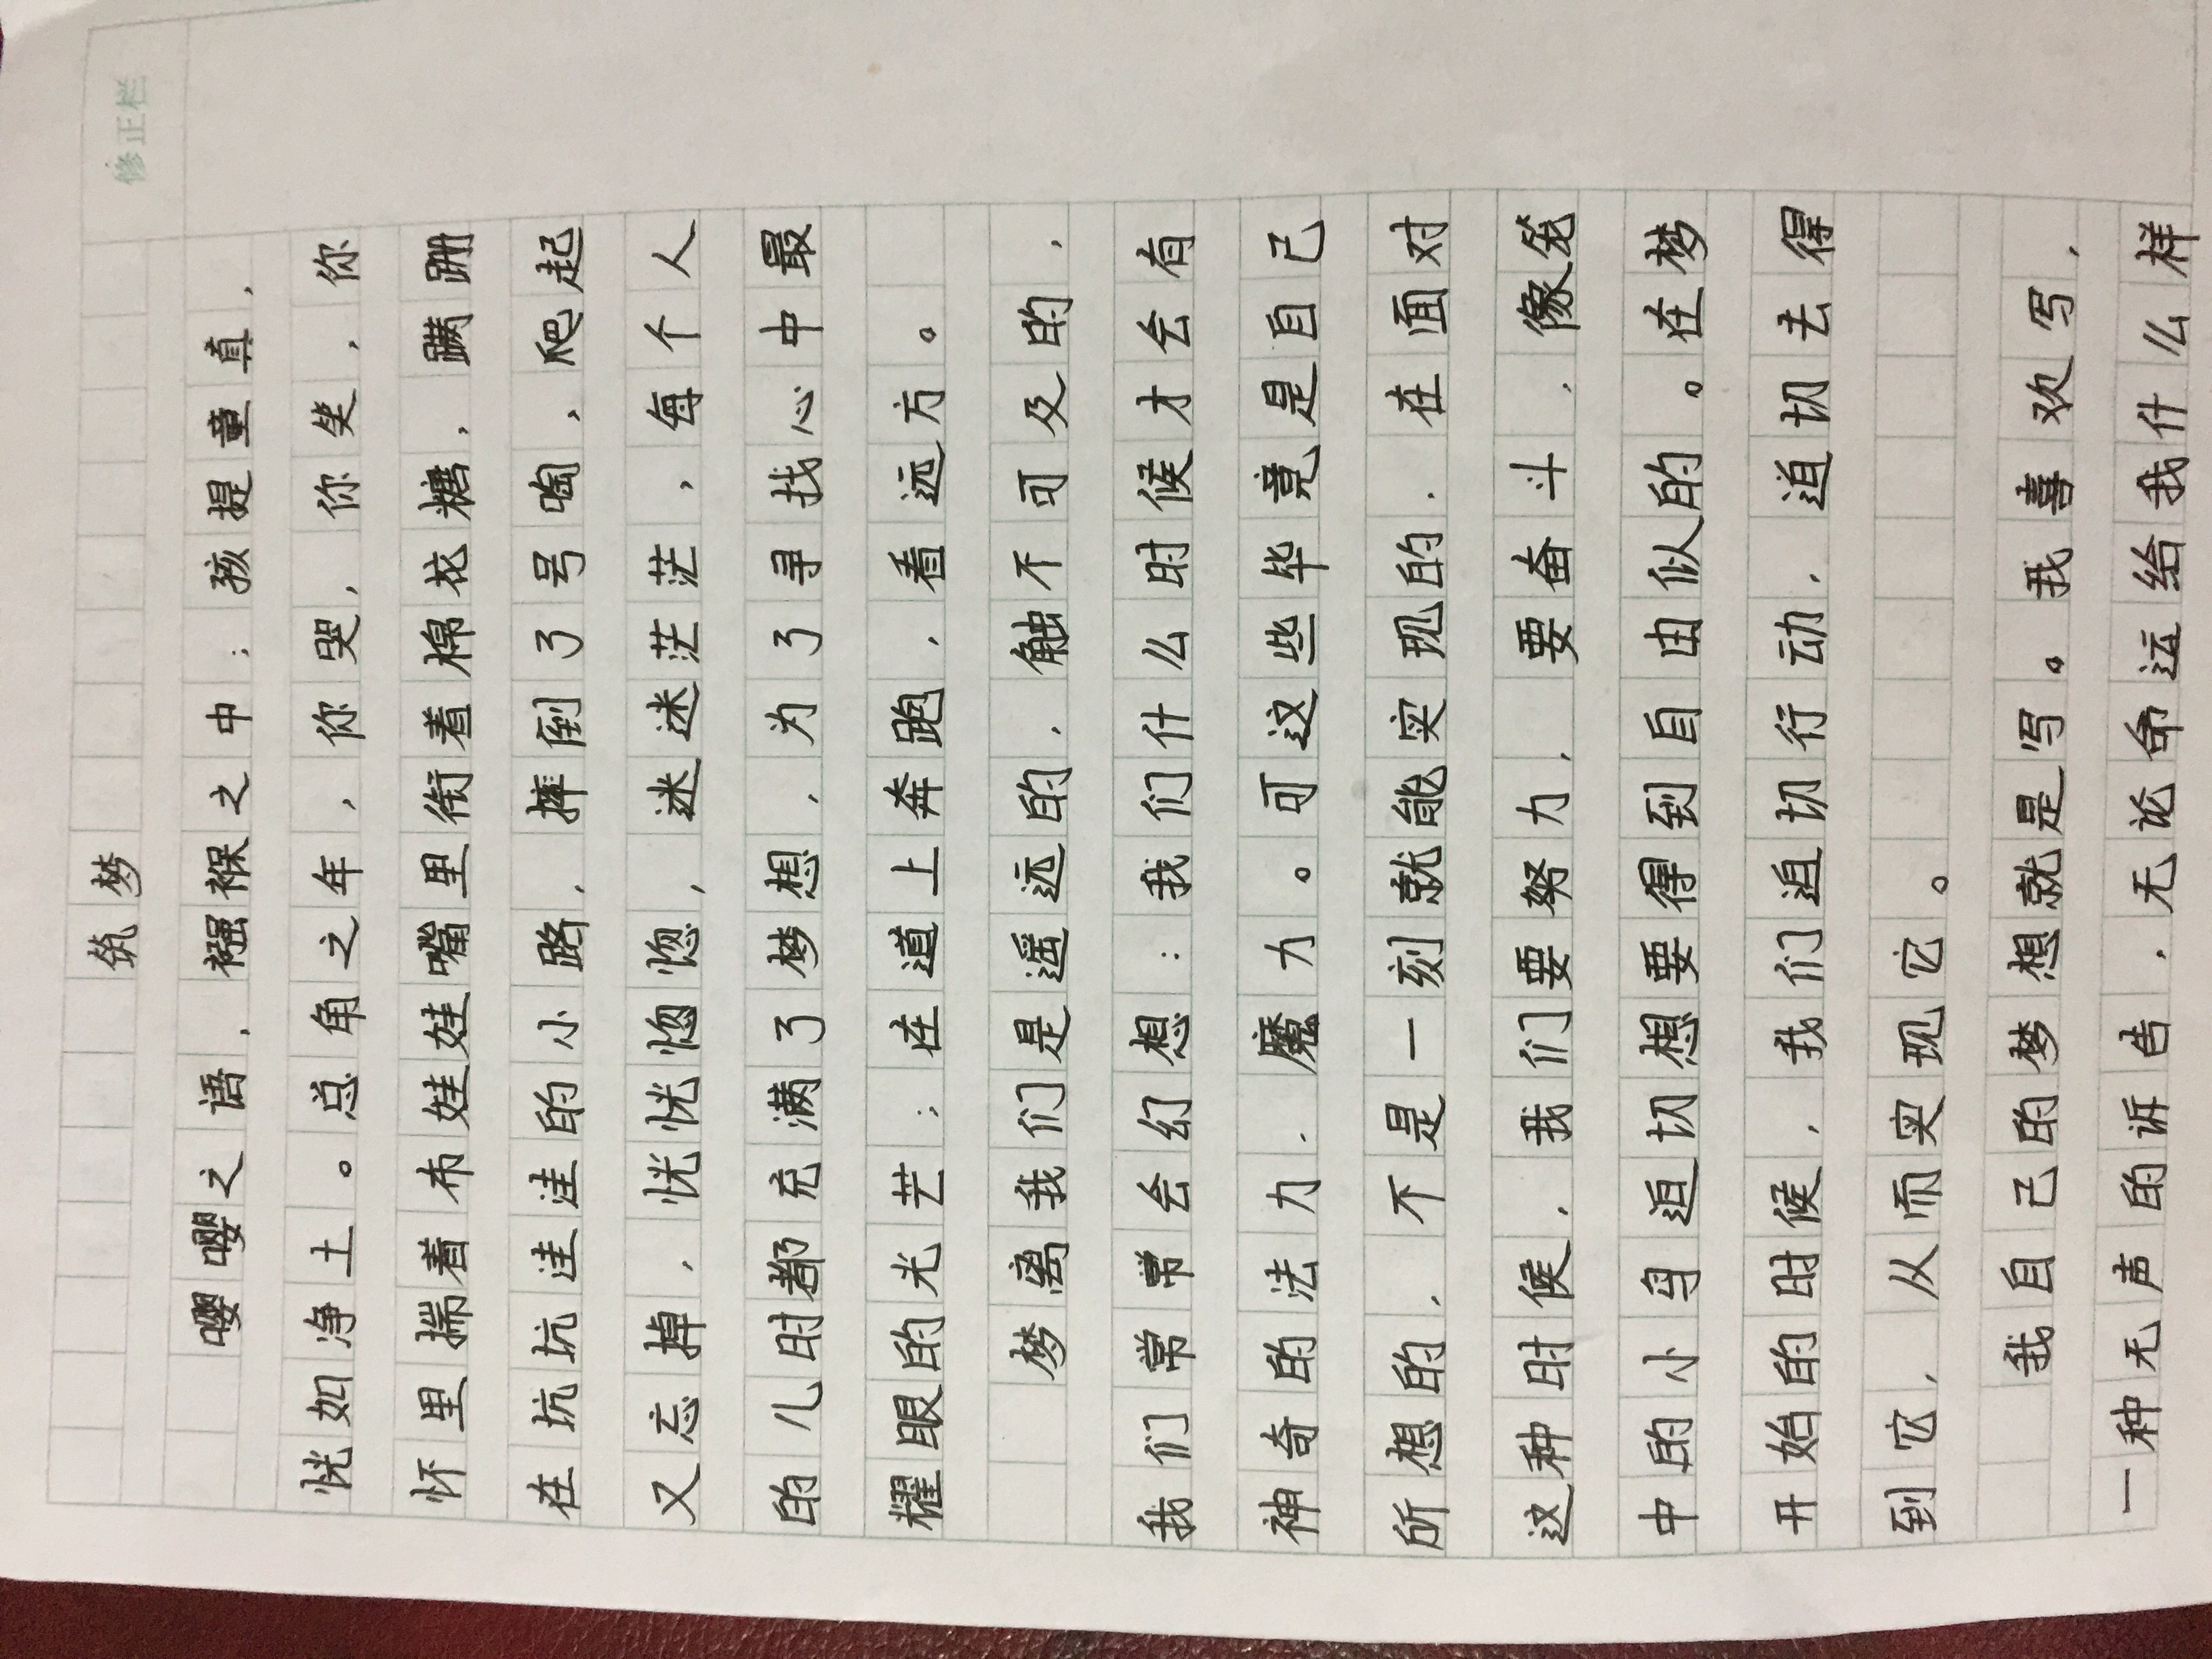 修正栏
筑梦
嘤嘤之语，襁褓之中；孩提童真，
恍如净土。总角之年，你哭，你笑，你
怀里揣着布娃娃嘴里衔着棉衣糖，蹒跚
在坑坑洼洼的小路，摔倒了号啕，爬起
又忘掉，恍恍惚惚，迷迷茫茫，每个人
的儿时都充满了梦想，为了寻找心中最
耀眼的光芒；在道上奔跑，看远方。
梦离我们是遥远的，触不可及的，
我们常常会幻想：我们什么时候才会有
神奇的法力，魔力。可这些毕竟是自己
所想的，不是一刻就能实现的，在面对
这种时候，我们要努力，要奋斗，像笼
中的小鸟迫切想要得到自由似的。在梦
开始的时候，我们迫切行动，迫切去得
到它，从而实现它。
我自己的梦想就是写。我喜欢写，
一种无声的诉告，无论命运给我什么样